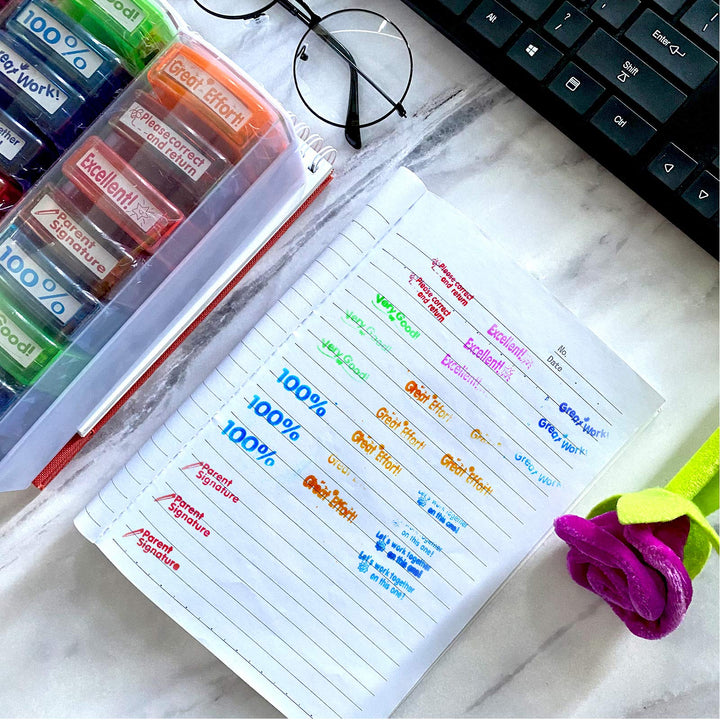 100%
Great Work!
gether
Great Effort!
Please correct
and return
Excellent!
Parent
Signature
100%
Good!
Alt
?
/
Enter
Shift
Ctrl
No.
Date
Please correct
and return
Please correct
and return
Very Good!
Very Good!
Very Good!
Excellent!
Excellent!
Excellent!
100%
100%
100%
Great Effort!
Great Effort!
Great Effort!
Great Effort!
Great
Great Effort!
Great Effort!
Great Work!
Great Work!
Great Work
Parent
Signature
Parent
Signature
Parent
Signature
Let's work together
on this one!
on this one!
Let's work together
on this one!
Let's work together
on this one!